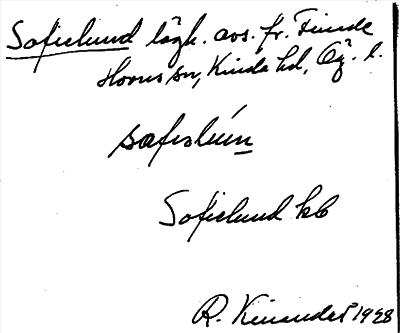 Sofielund lägh. avs. fr. Finde
Horns sn, Kinda hd, Ög. l.
sofislún
Sofielund kb
R. Kinander 1928